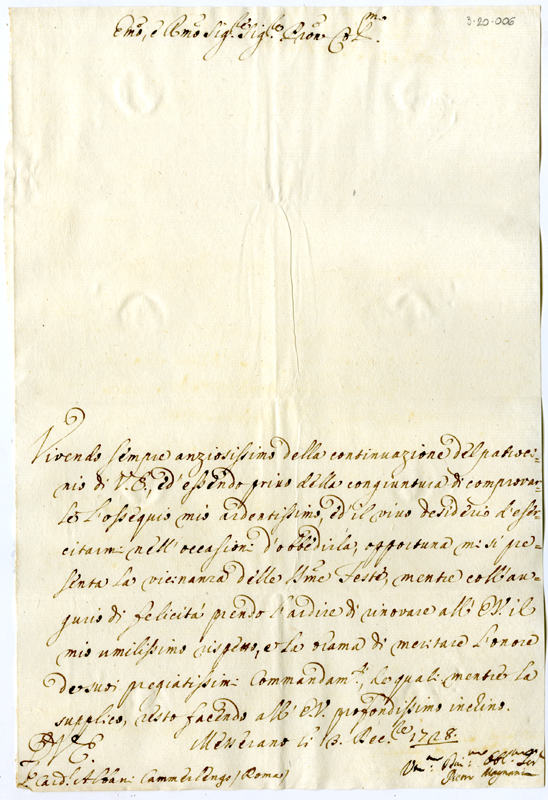 3-20-006
Emo, e Rmo Sig.re Sig.re Pron Col.mo
Vivendo sempre anziosissimo della continuazione del patroci-
nio di V.E., ed' essendo privo della congiuntura di comprovar-
le l'ossequio mio ardentissimo, ed il vivo desiderio d'eser-
citarmi nell'occasioni d'obbedirla, opportuna mi si pre-
senta la vicinanza delle Sme Feste, mentre coll'au-
gurio di felicità prendo l'ardire di rinovare all' E.V. il
mio umilissimo rispetto, e la brama di meritare l'onore
de suoi pregiatissimi Commandam.ti, de quali mentre la
supplico, resto facendo all' E.V. profondissimo inchino.
Messerano li 13. Dec.bre 1728.
D.V.E.
S. Card. Albani Cammerlengo (Roma)